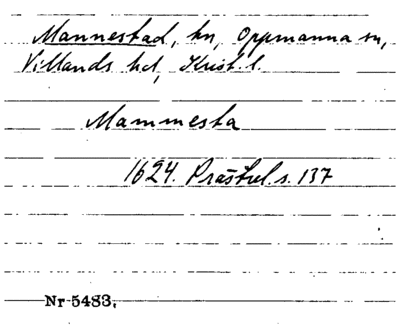 Mannestad, hn, Oppmanna sn,
Villands hd, Krist. l.
Mammesta
1624. Prästrel. s. 137
Nr 5483.